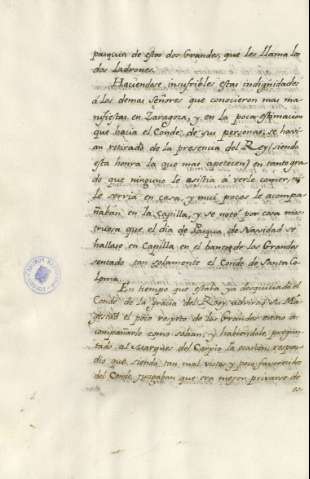 pasquin de estos dos Grandes, que les llama los
dos ladrones.
Haciendose insufribles estas indignidades
á los demas Señores que conocieron mas ma-
nifiestas en Zaragoza, y en la poca estimacion
que hacia el Conde de sus personas, se havi-
an retirado de la presencia del Rey (siendo
esta honra la que mas apetecen) en tanto gra-
do que ninguno le asistia á verle comer, ni
le servia en casa, y mui pocos le acompa-
ñaban en la Capilla, y se notó por cosa mis-
teriosa que el dia de Pasqua de Navidad se
hallase en Capilla en el banco de los Grandes
sentado tan solamente el Conde de Santa Co-
loma.
En tiempo que estaba ya desquiciado el
Conde de la gracia del Rey advirtió Su Ma-
gestad el poco respeto de los Grandes en no a-
compañarle como solian, y habiendole pregun-
tado al Marques del Carpio la razon, respon-
dio que siendo tan mal vistos y poco favorecidos
del Conde, juzgaban que era mejor privarse de